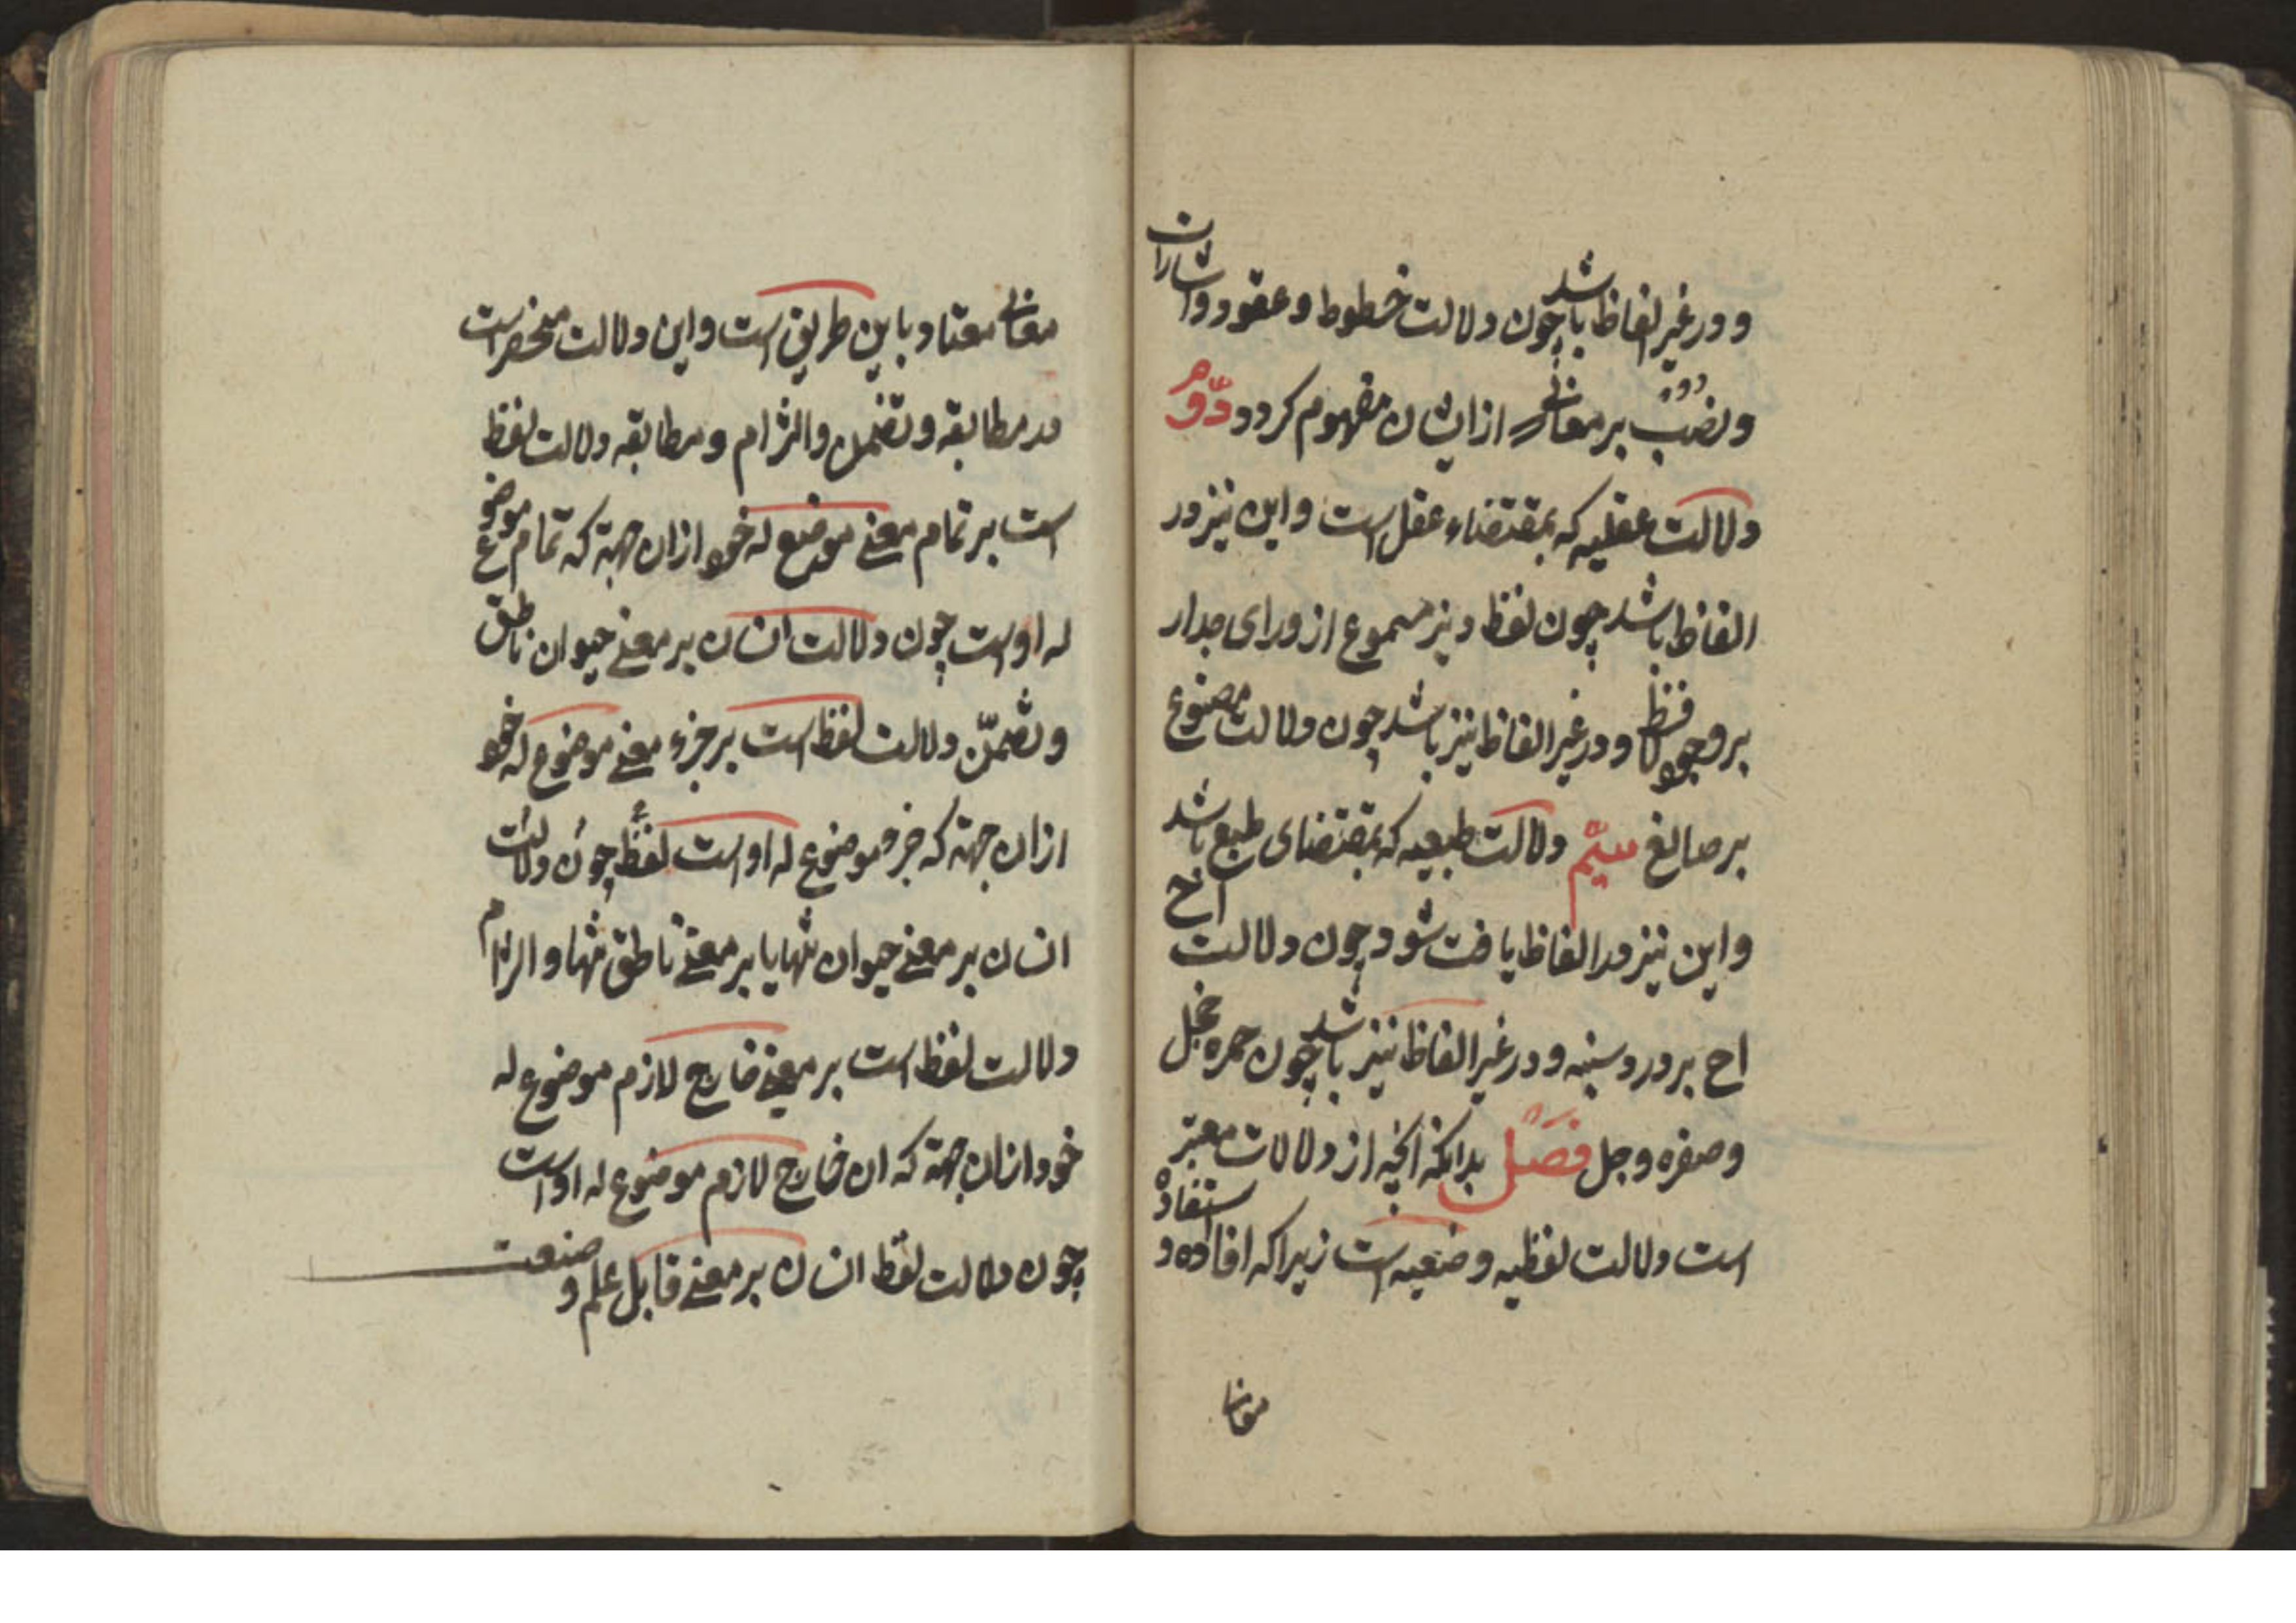 و در غیر الفاظ باشد چون دلالت خطوط و عقود و اشارات
و نصب بر معانی که از ایشان مفهوم کردد دوّم
دلالت عقلیه که بمقتضاء عقل است و این نیز در
الفاظ باشد چون لفظ دیز مسموع از ورای جدار
بر وجود لافظ و در غیر الفاظ نیز باشد چون دلالت مصنوع
بر صانع سیّم دلالت طبعیه که بمقتضای طبع باشد
و این نیز در الفاظ یافت شود چون دلالت اح
اح بر درد سینه و در غیر الفاظ نیز باشد چون حمره خجل
و صفره وجل فصل بدانکه آنچه از دلالات معتبر
است دلالت لفظیه وضعیه است زیرا که افاده و استفاده
معانی
معانی معتاد باین طریق است و این دلالت منحصر است
در مطابقه و تضمن و التزام و مطابقه دلالت لفظ
است بر تمام معنی موضوع له خود ازان جهة که تمام موضوع
له اوست چون دلالت انسان بر معنی حیوان ناطق
و تضمّن دلالت لفظ است بر جزء معنی موضوع له خود
ازان جهة که جزو موضوع له اوست لفظ چون دلالت
انسان بر معنی حیوان تنها یا بر معنی ناطق تنها و التزام
دلالت لفظ است بر معنی خارج لازم موضوع له
خود ازان جهة که ان خارج لازم موضوع له اوست
چون دلالت لفظ انسان بر معنی قابل علم و صنعت